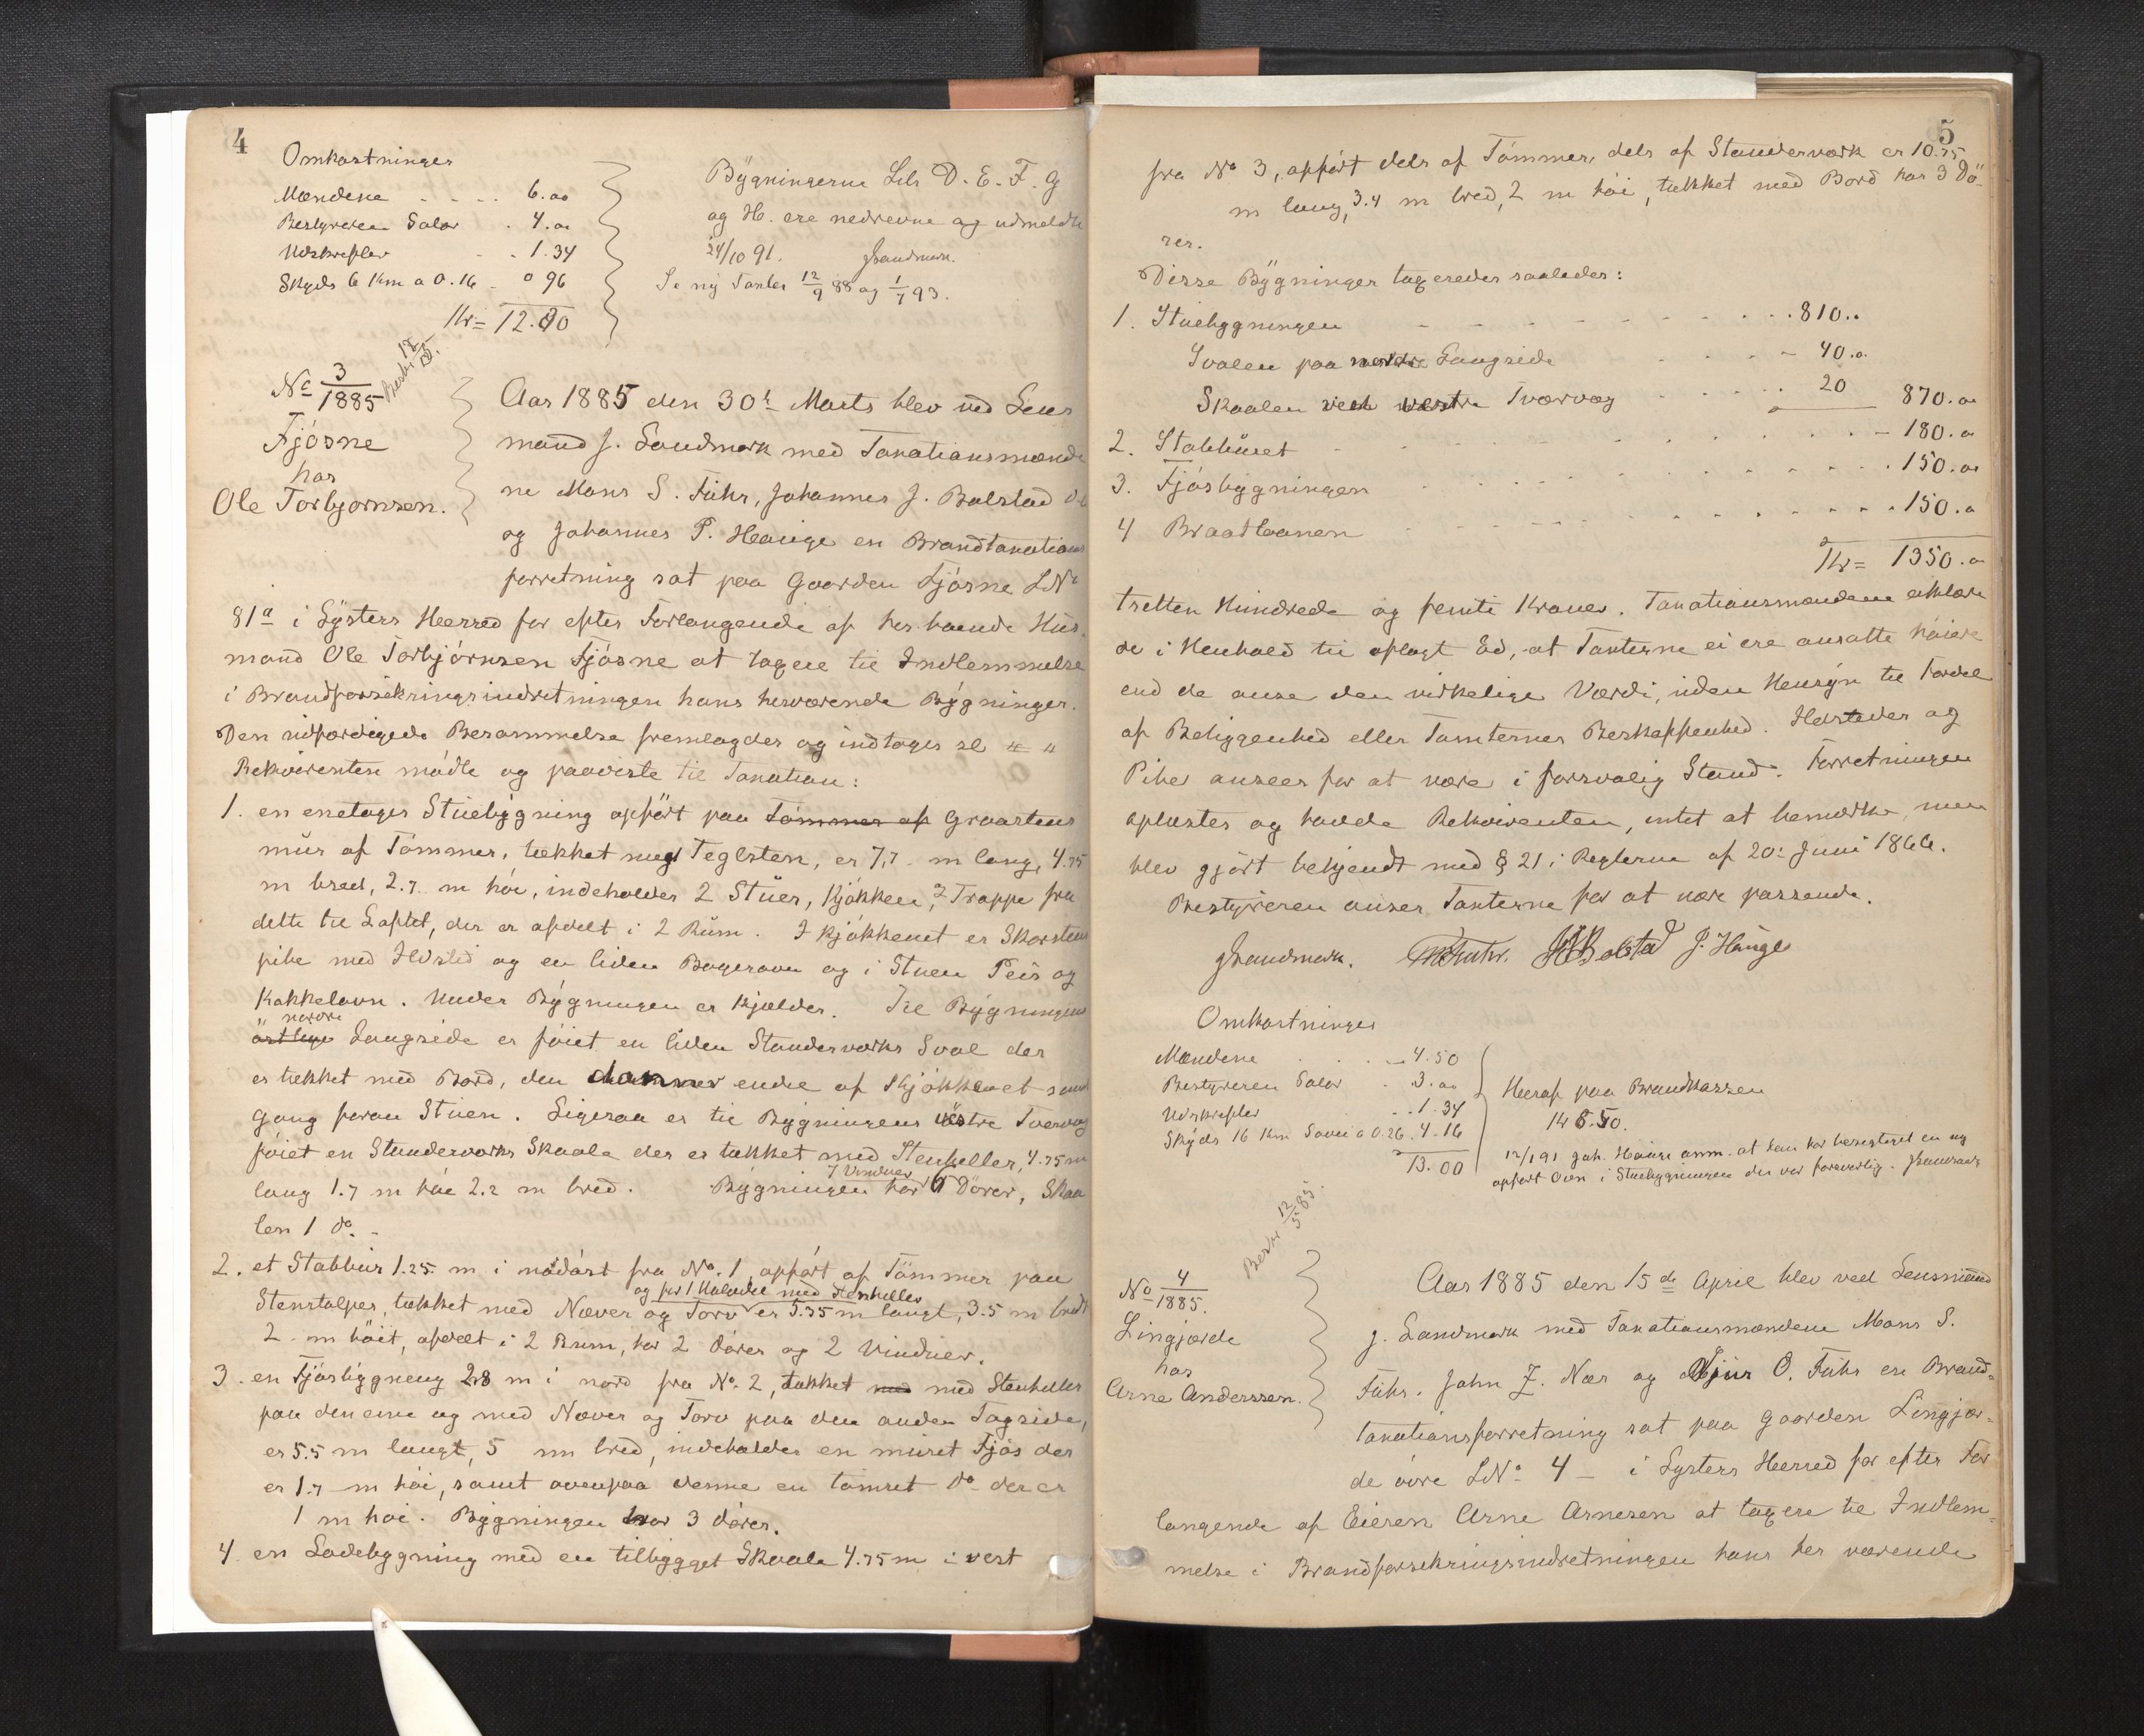 4
Omkostninger
Mændene 6.00
Bestyreren Salær 4.00
Udskrifter 1.34
Skyds 6 Km a 0.16 0 96
Kr = 12.30
Bygningerne Litr D. E. F. G
og H. ere nedrevne og udmeldte
24/10 91. JLandmark.
Se ny Taxter 12/9 88 og 1/7 93.
No 3/1885
Fjøsne
hos
Ole Torbjørnsen.
Aar 1885 den 30te Marts blev ved Lens
mand J. Landmark med Taxationsmænde
ne Mons S. Fuhr, Johannes J. Bolstad
og Johannes P. Hauge en Brandtaxations
forretning sat paa Gaarden Fjøsne LNo
81a i Lysters Herred for efter Forlangende af hosboende Hus
mand Ole Torbjørnsen Fjøsne at taxere til Indlemmelse
i Brandforsikringsindretningen hans herværende Bygninger.
Den udfærdigede Berammelse fremlagdes og indtages sl " "
Rekvirenten mødte og paaviste til Taxation:
1. en enetages Stuebygning opført paa Tømmer af Graastens
mur af Tømmer, tækket med Teglsten, er 7,7 m lang, 4.75
m bred, 2.7 m høi, indeholder 2 Stuer, Kjøkken, Trappe fra
dette til Loftet, der er afdelt i 2 Rum. I Kjøkkenet er Skorstens
pibe med Ildsted og en liden Bagerovn og i Stuen Peis og
Kakkelovn. Under Bygningen er Kjælder. Til Bygningens
nordre
østlige Langside er føiet en liden Standerværks Sval der
er tækket med Bord, den danner endel af Kjøkkenet samt
Gang foran Stuen. Ligesaa er til Bygningens vestre Tværvæg
føiet en Standerværks Skaale der er tækket med Stenheller, 4.75 m
lang 1.7 m høi 2.2 m bred. Bygningen har 7 Vinduer 6 Dører, Skaa
len 1 do.
2. et Stabbur 1.25 m i nordøst fra No. 1, opført af Tømmer paa
og for 1 Halvdel med Stenheller
Stenstolper, tækket med Næver og Torv er 5.35 m langt, 3.5 m bredt
2 m høit, afdelt i 2 Rum, har 2 Dører og 2 Vinduer.
3. en Fjøsbygning 28 m i nord fra No. 2, tækket med med Stenheller
paa den ene og med Næver og Torv paa den anden Tagside,
er 5.5 m langt, 5 m bred, indeholder en muret Fjøs der
er 1.7 m høi, samt ovenpaa denne en tømret do der er
1 m høi. Bygningen har 3 dører.
4. en Ladebygning med en tilbygget Skaale 4.75 m i vest
5
fra No 3, opført dels af Tømmer, dels af Standerværk er 10.75
m lang, 3.4 m bred, 2 m høi, tækket med Bord har 3 Dø-
rer.
Disse Bygninger taxeredes saaledes:
1. Stuebygningen 810..
Svalen paa nordre Langside 40.00
Skaalen ved vestre Tværvæg 20 870.00
2. Stabburet 180.00
3. Fjøsbygningen 150.00
4 Braatlaanen 150.00
Kr = 1350.00
tretten Hundrede og femti Kroner. Taxationsmændene erklære
de i Henhold til aflagt Ed, at Taxterne ei ere ansatte høiere
end de anse den virkelige Værdi, uden Hensyn til Fordel
af Beliggenhed eller Tomternes Beskaffenhed. Ildsteder og
Piber ansees for at være i forsvarlig Stand. Forretningen
oplæstes og havde Rekvirenten intet at bemærke, men
blev gjort bekjendt med § 21 i Reglerne af 20. Juni 1866.
Bestyreren anser Taxterne for at være passende.
JLandmark. MSFuhr. JJBolstad J. Hauge
Omkostninger
Mændene 4.50
Bestyreren Salær 3.00
Udskrifter 1.34
Skyds 16 Km Søvei a 0.26 4.16
13.00
Heraf paa Brandkassen
Kr 6.50.
12/1 91 Joh. Hauge anm. at han har besigtiget en ny
opført Ovn i Stuebygningen der var forsvarlig. JLandmark
Beskr 12/5 85.
No 4/1885.
Lingjærde
hos
Arne Anderssen.
Aar 1885 den 15de April blev ved Lensmand
J. Landmark med Taxationsmændene Mons S.
Fuhr, John J. Nær og Sjur O. Fuhr en Brand-
taxationsforretning sat paa Gaarden Lingjær-
de øvre LNo. 4 - i Lysters Herred for efter For
langende af Eieren Arne Arnesen at taxere til Indlem-
melse i Brandforsikringsindretningen hans her værende